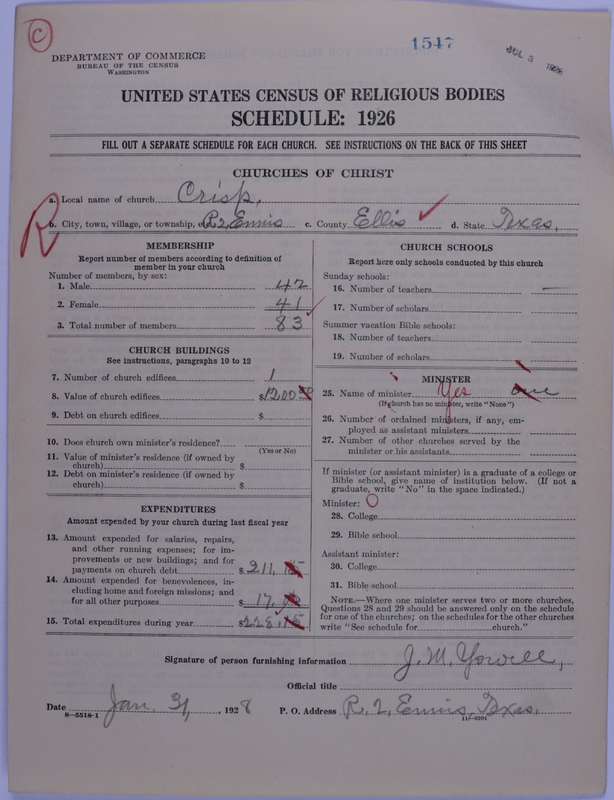 C
1547
JUL 3 1928
DEPARTMENT OF COMMERCE
BUREAU OF THE CENSUS
WASHINGTON
UNITED STATES CENSUS OF RELIGIOUS BODIES
SCHEDULE: 1926
FILL OUT A SEPARATE SCHEDULE FOR EACH CHURCH. SEE INSTRUCTIONS ON THE BACK OF THIS SHEET
CHURCHES OF CHRIST
a. Local name of church Crisp.
R
b. City, town, village, or township, R2, Ennis c. County Ellis ✓ d. State Texas.
MEMBERSHIP
Report number of members according to definition of
member in your church
Number of members, by sex:
1. Male 42
2. Female 41
3. Total number of members 83 ✓
CHURCH BUILDINGS
See instructions, paragraphs 10 to 12
7. Number of church edifices 1
8. Value of church edifices $1200
9. Debt on church edifices $
10. Does church own minister's residence?
(Yes or No)
11. Value of minister's residence (if owned by
church) $
12. Debt on minister's residence (if owned by
church) $
EXPENDITURES
Amount expended by your church during last fiscal year
13. Amount expended for salaries, repairs,
and other running expenses; for im-
provements or new buildings; and for
payments on church debt $211.
14. Amount expended for benevolences, in-
cluding home and foreign missions; and
for all other purposes $ 17.
15. Total expenditures during year $228.
CHURCH SCHOOLS
Report here only schools conducted by this church
Sunday schools:
16. Number of teachers —
17. Number of scholars
Summer vacation Bible schools:
18. Number of teachers
19. Number of scholars
MINISTER
25. Name of minister Yes one
(If church has no minister, write "None")
26. Number of ordained ministers, if any, em-
ployed as assistant ministers
27. Number of other churches served by the
minister or his assistants
If minister (or assistant minister) is a graduate of a college or
Bible school, give name of institution below. (If not a
graduate, write "No" in the space indicated.)
Minister: O
28. College
29. Bible school
Assistant minister:
30. College
31. Bible school
NOTE.—Where one minister serves two or more churches,
Questions 28 and 29 should be answered only on the schedule
for one of the churches; on the schedules for the other churches
write "See schedule for church."
Signature of person furnishing information J. M. Yowell,
Official title
Date Jan. 31, 1928 P. O. Address R. 2, Ennis, Texas.
8—5518-1